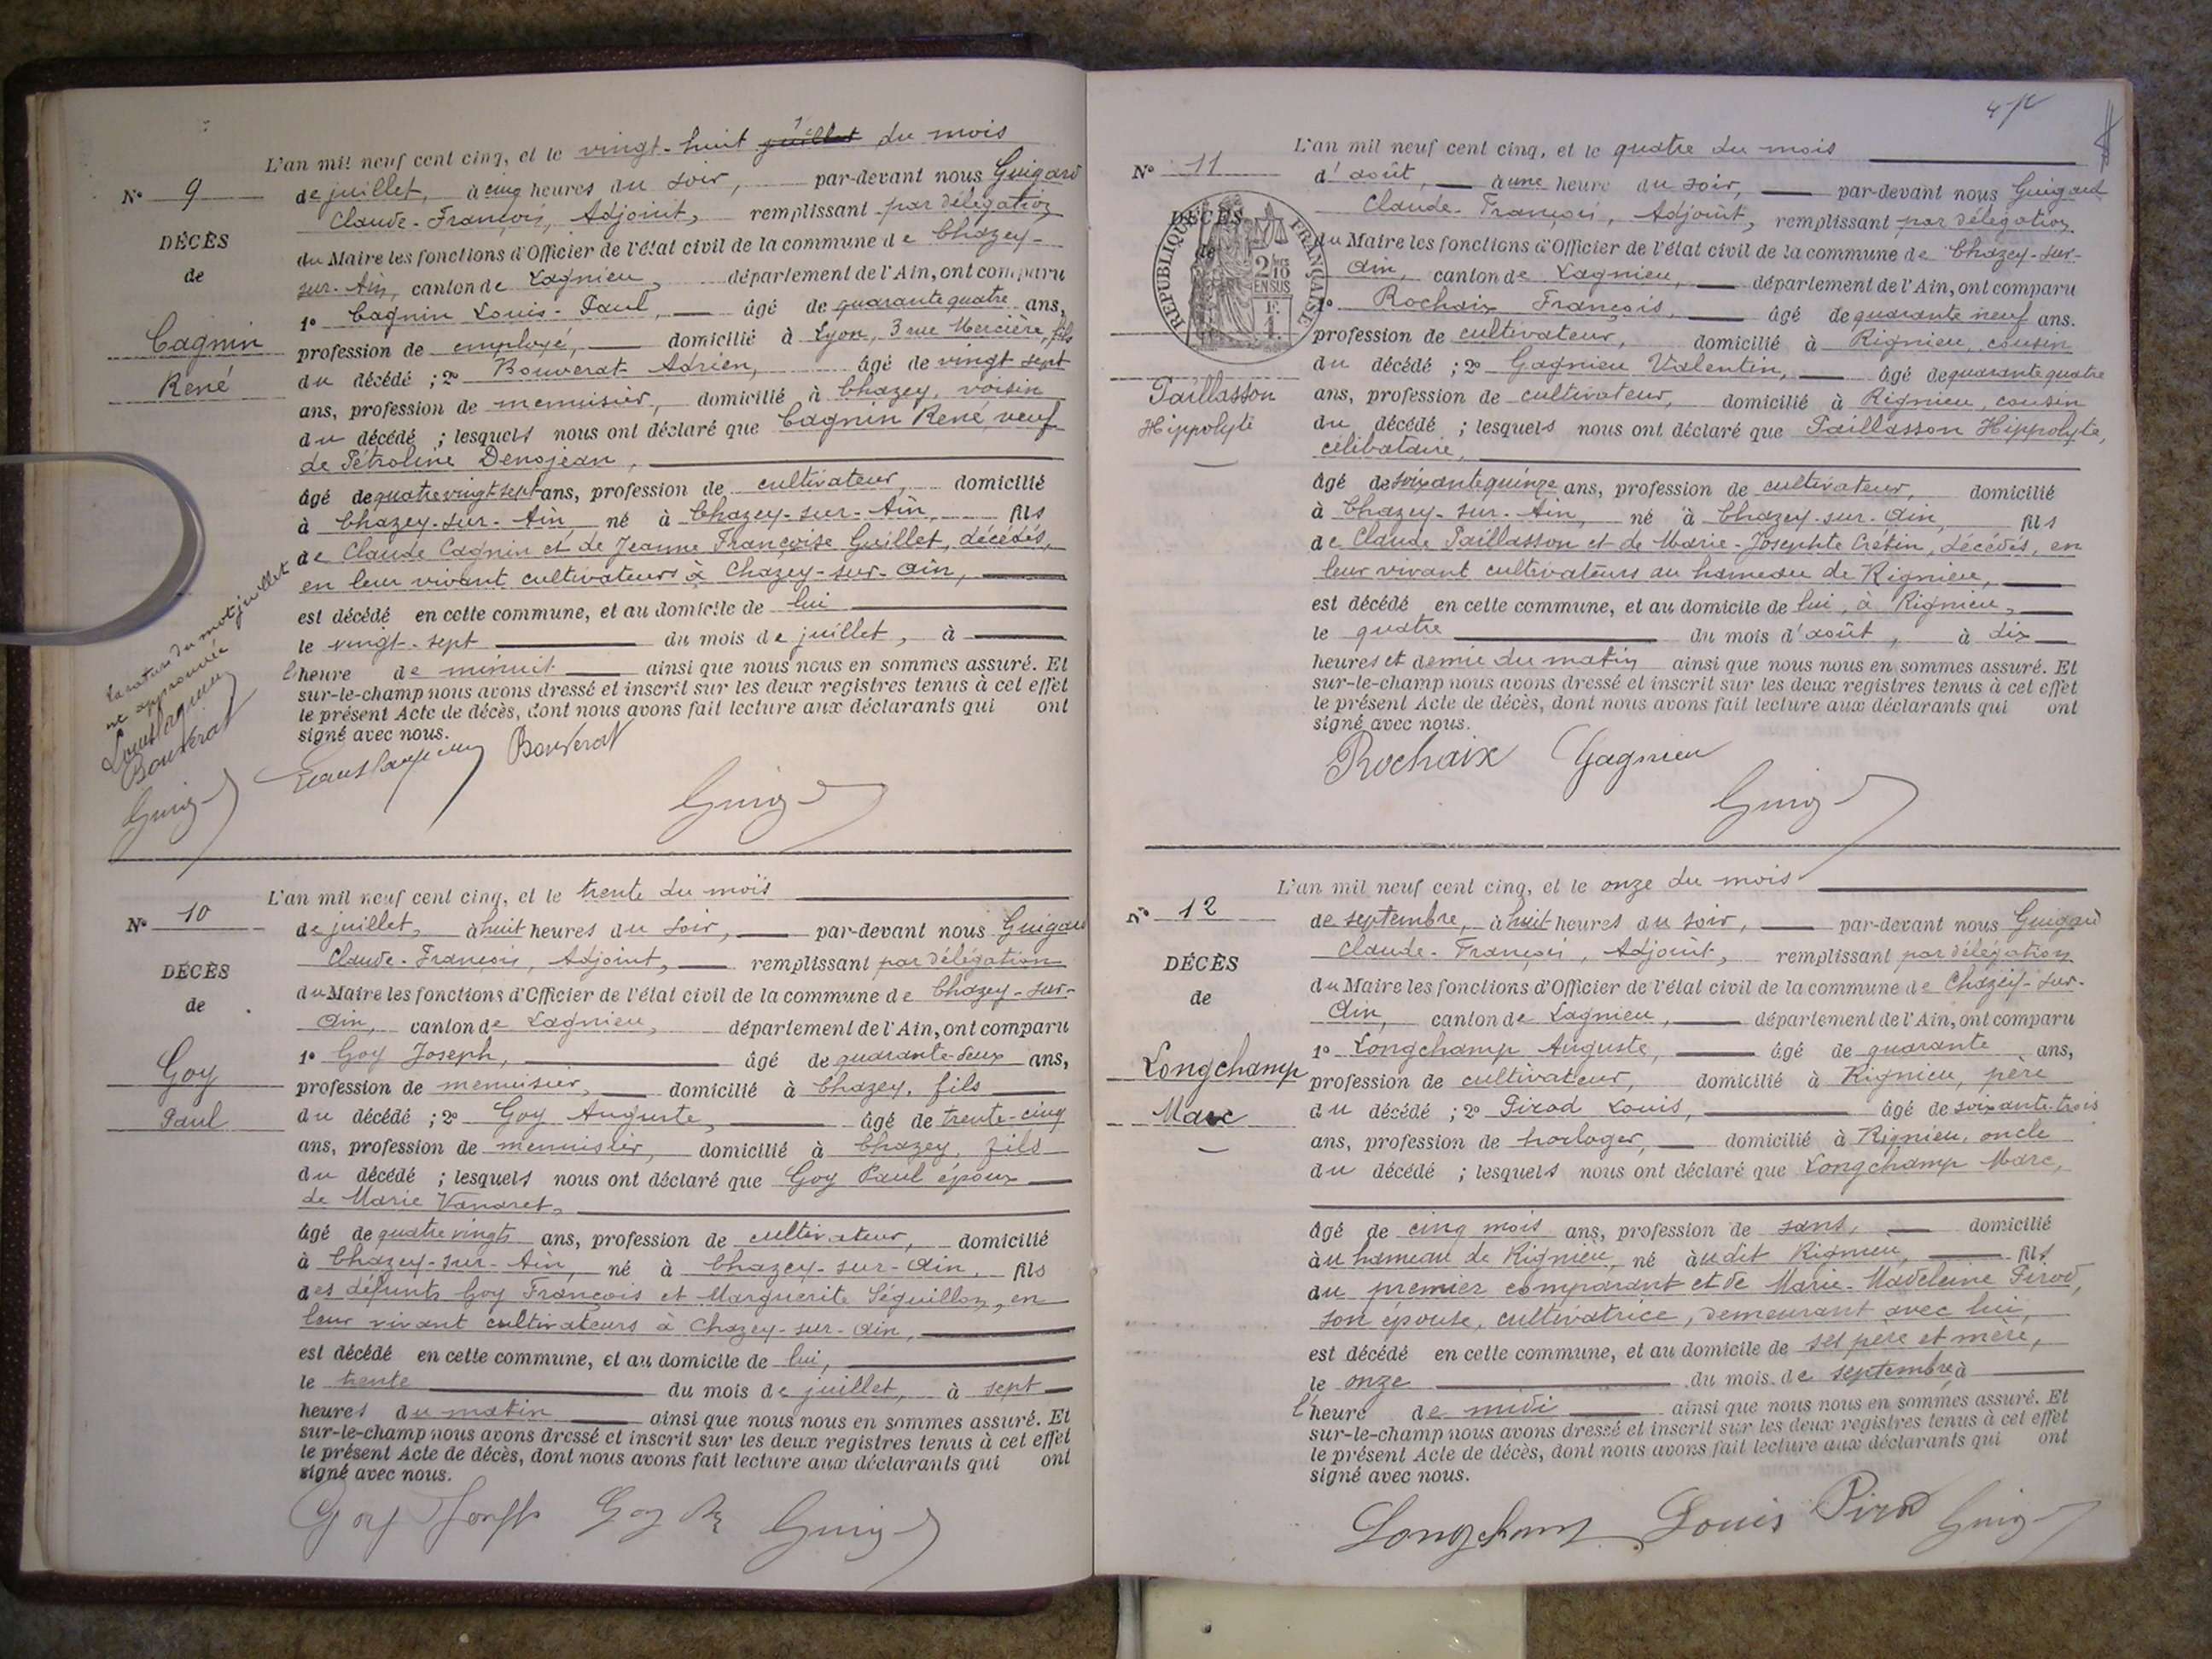 L'an mil neuf cent cinq, et le vingt-huit juillet du mois
N° 9
de juillet, à cinq heures du soir, par-devant nous Guigard
Claude-François, Adjoint, remplissant par délégation
DÉCÈS
du Maire les fonctions d'Officier de l'état civil de la commune de Chazey-
de
sur-Ain, canton de Lagnieu, département de l'Ain, ont comparu
1° Cagnin Louis-Paul, âgé de quarante quatre ans,
Cagnin
profession de employé, domicilié à Lyon, 3 rue Mercière, fils
René
du décédé ; 2° Bouverat Adrien, âgé de vingt sept
ans, profession de menuisier, domicilié à Chazey, voisin
du décédé ; lesquels nous ont déclaré que Cagnin René, veuf
de Pétroline Denojean,
âgé de quatre vingt sept ans, profession de cultivateur, domicilié
à Chazey-sur-Ain, né à Chazey-sur-Ain, fils
de Claude Cagnin et de Jeanne Françoise Guillet, décédés,
en leur vivant cultivateurs à Chazey-sur-Ain,
est décédé en cette commune, et au domicile de lui
le vingt-sept du mois de juillet, à
l'heure de minuit ainsi que nous nous en sommes assuré. Et
sur-le-champ nous avons dressé et inscrit sur les deux registres tenus à cet effet
le présent Acte de décès, dont nous avons fait lecture aux déclarants qui ont
signé avec nous.
La rature du mot juillet
est approuvée
Louis Cagnin
Bouverat
Guig
Louis Cagnin Bouverat
Guig
L'an mil neuf cent cinq, et le trente du mois
N° 10
de juillet, à huit heures du soir, par-devant nous Guigard
Claude-François, Adjoint, remplissant par délégation
DÉCÈS
du Maire les fonctions d'Officier de l'état civil de la commune de Chazey-sur-
de
Ain, canton de Lagnieu, département de l'Ain, ont comparu
1° Goy Joseph, âgé de quarante-deux ans,
Goy
profession de menuisier, domicilié à Chazey, fils
Paul
du décédé ; 2° Goy Auguste, âgé de trente-cinq
ans, profession de menuisier, domicilié à Chazey, fils
du décédé ; lesquels nous ont déclaré que Goy Paul époux
de Marie Vanaret,
âgé de quatre vingts ans, profession de cultivateur, domicilié
à Chazey-sur-Ain, né à Chazey-sur-Ain, fils
des défunts Goy François et Marguerite Séguillon, en
leur vivant cultivateurs à Chazey-sur-Ain,
est décédé en cette commune, et au domicile de lui,
le trente du mois de juillet, à sept
heures du matin ainsi que nous nous en sommes assuré. Et
sur-le-champ nous avons dressé et inscrit sur les deux registres tenus à cet effet
le présent Acte de décès, dont nous avons fait lecture aux déclarants qui ont
signé avec nous.
Goy Joseph Goy Guig
L'an mil neuf cent cinq, et le quatre du mois
N° 11
d'août, à une heure du soir, par-devant nous Guigard
Claude-François, Adjoint, remplissant par délégation
DÉCÈS
du Maire les fonctions d'Officier de l'état civil de la commune de Chazey-sur-
de
RÉPUBLIQUE FRANÇAISE
2/10 EN SUS
Ain, canton de Lagnieu, département de l'Ain, ont comparu
1° Rochaix François, âgé de quarante neuf ans.
profession de cultivateur, domicilié à Rignieu, cousin
du décédé ; 2° Gagnieu Valentin, âgé de quarante quatre
Paillasson
ans, profession de cultivateur, domicilié à Rignieu, cousin
Hippolyte
du décédé ; lesquels nous ont déclaré que Paillasson Hippolyte,
célibataire,
âgé de soixante quinze ans, profession de cultivateur, domicilié
à Chazey-sur-Ain, né à Chazey-sur-Ain, fils
de Claude Paillasson et de Marie-Josephte Crétin, décédés, en
leur vivant cultivateurs au hameau de Rignieu,
est décédé en cette commune, et au domicile de lui, à Rignieu,
le quatre du mois d'août, à dix
heures et demie du matin ainsi que nous nous en sommes assuré. Et
sur-le-champ nous avons dressé et inscrit sur les deux registres tenus à cet effet
le présent Acte de décès, dont nous avons fait lecture aux déclarants qui ont
signé avec nous.
Rochaix Gagnieu
Guig
L'an mil neuf cent cinq, et le onze du mois
N° 12
de septembre, à huit heures du soir, par-devant nous Guigard
Claude-François, Adjoint, remplissant par délégation
DÉCÈS
du Maire les fonctions d'Officier de l'état civil de la commune de Chazey-sur-
de
Ain, canton de Lagnieu, département de l'Ain, ont comparu
1° Longchamp Auguste, âgé de quarante ans,
Longchamp
profession de cultivateur, domicilié à Rignieu, père
Marc
du décédé ; 2° Pirod Louis, âgé de soixante-trois
ans, profession de horloger, domicilié à Rignieu, oncle
du décédé ; lesquels nous ont déclaré que Longchamp Marc,
âgé de cinq mois ans, profession de sans, domicilié
au hameau de Rignieu, né audit Rignieu, fils
du premier comparant et de Marie-Madeleine Pirod,
son épouse, cultivatrice, demeurant avec lui,
est décédé en cette commune, et au domicile de ses père et mère,
le onze du mois de septembre à
l'heure de midi ainsi que nous nous en sommes assuré. Et
sur-le-champ nous avons dressé et inscrit sur les deux registres tenus à cet effet
le présent Acte de décès, dont nous avons fait lecture aux déclarants qui ont
signé avec nous.
Longchamp Louis Pirod Guig